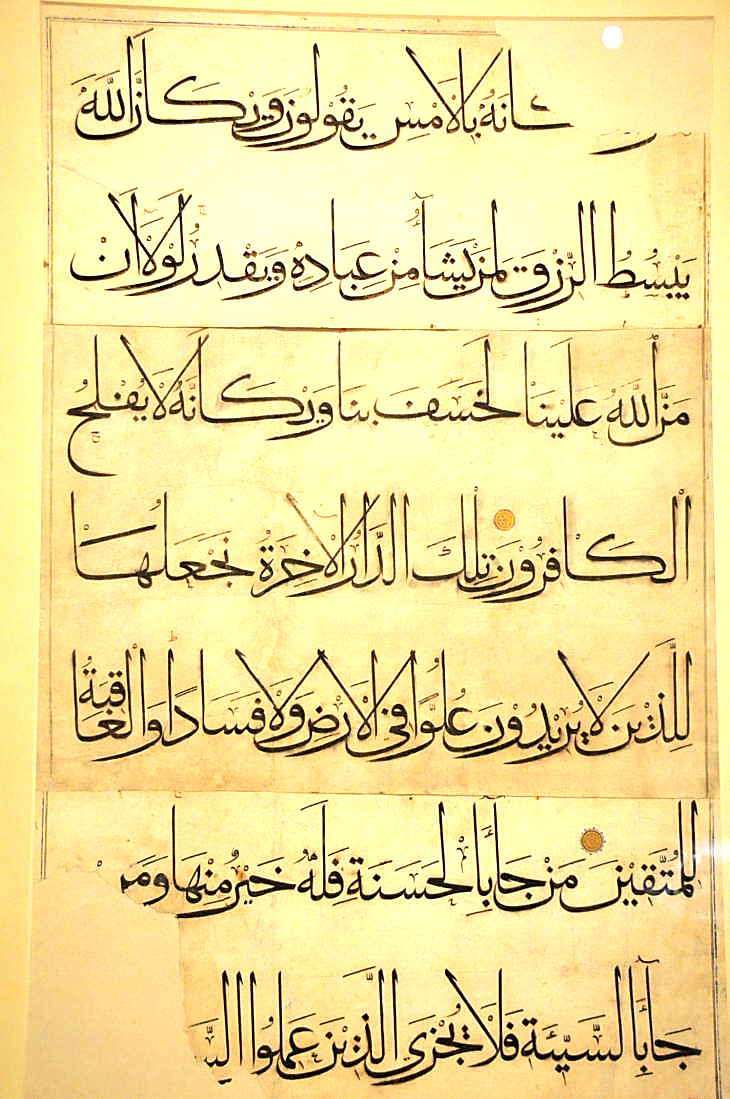 مكانه بالامس يقولون ويكان الله
يبسط الرزق لمن يشآء من عباده ويقدر لولا ان
من الله علينا لخسف بنا ويكانه لا يفلح
الكافرون تلك الدار الاخرة نجعلها
للذين لا يريدون علوا فى الارض ولا فسادا والعاقبة
للمتقين من جآء بالحسنة فله خير منها ومن
جآء بالسيئة فلا يجزى الذين عملوا